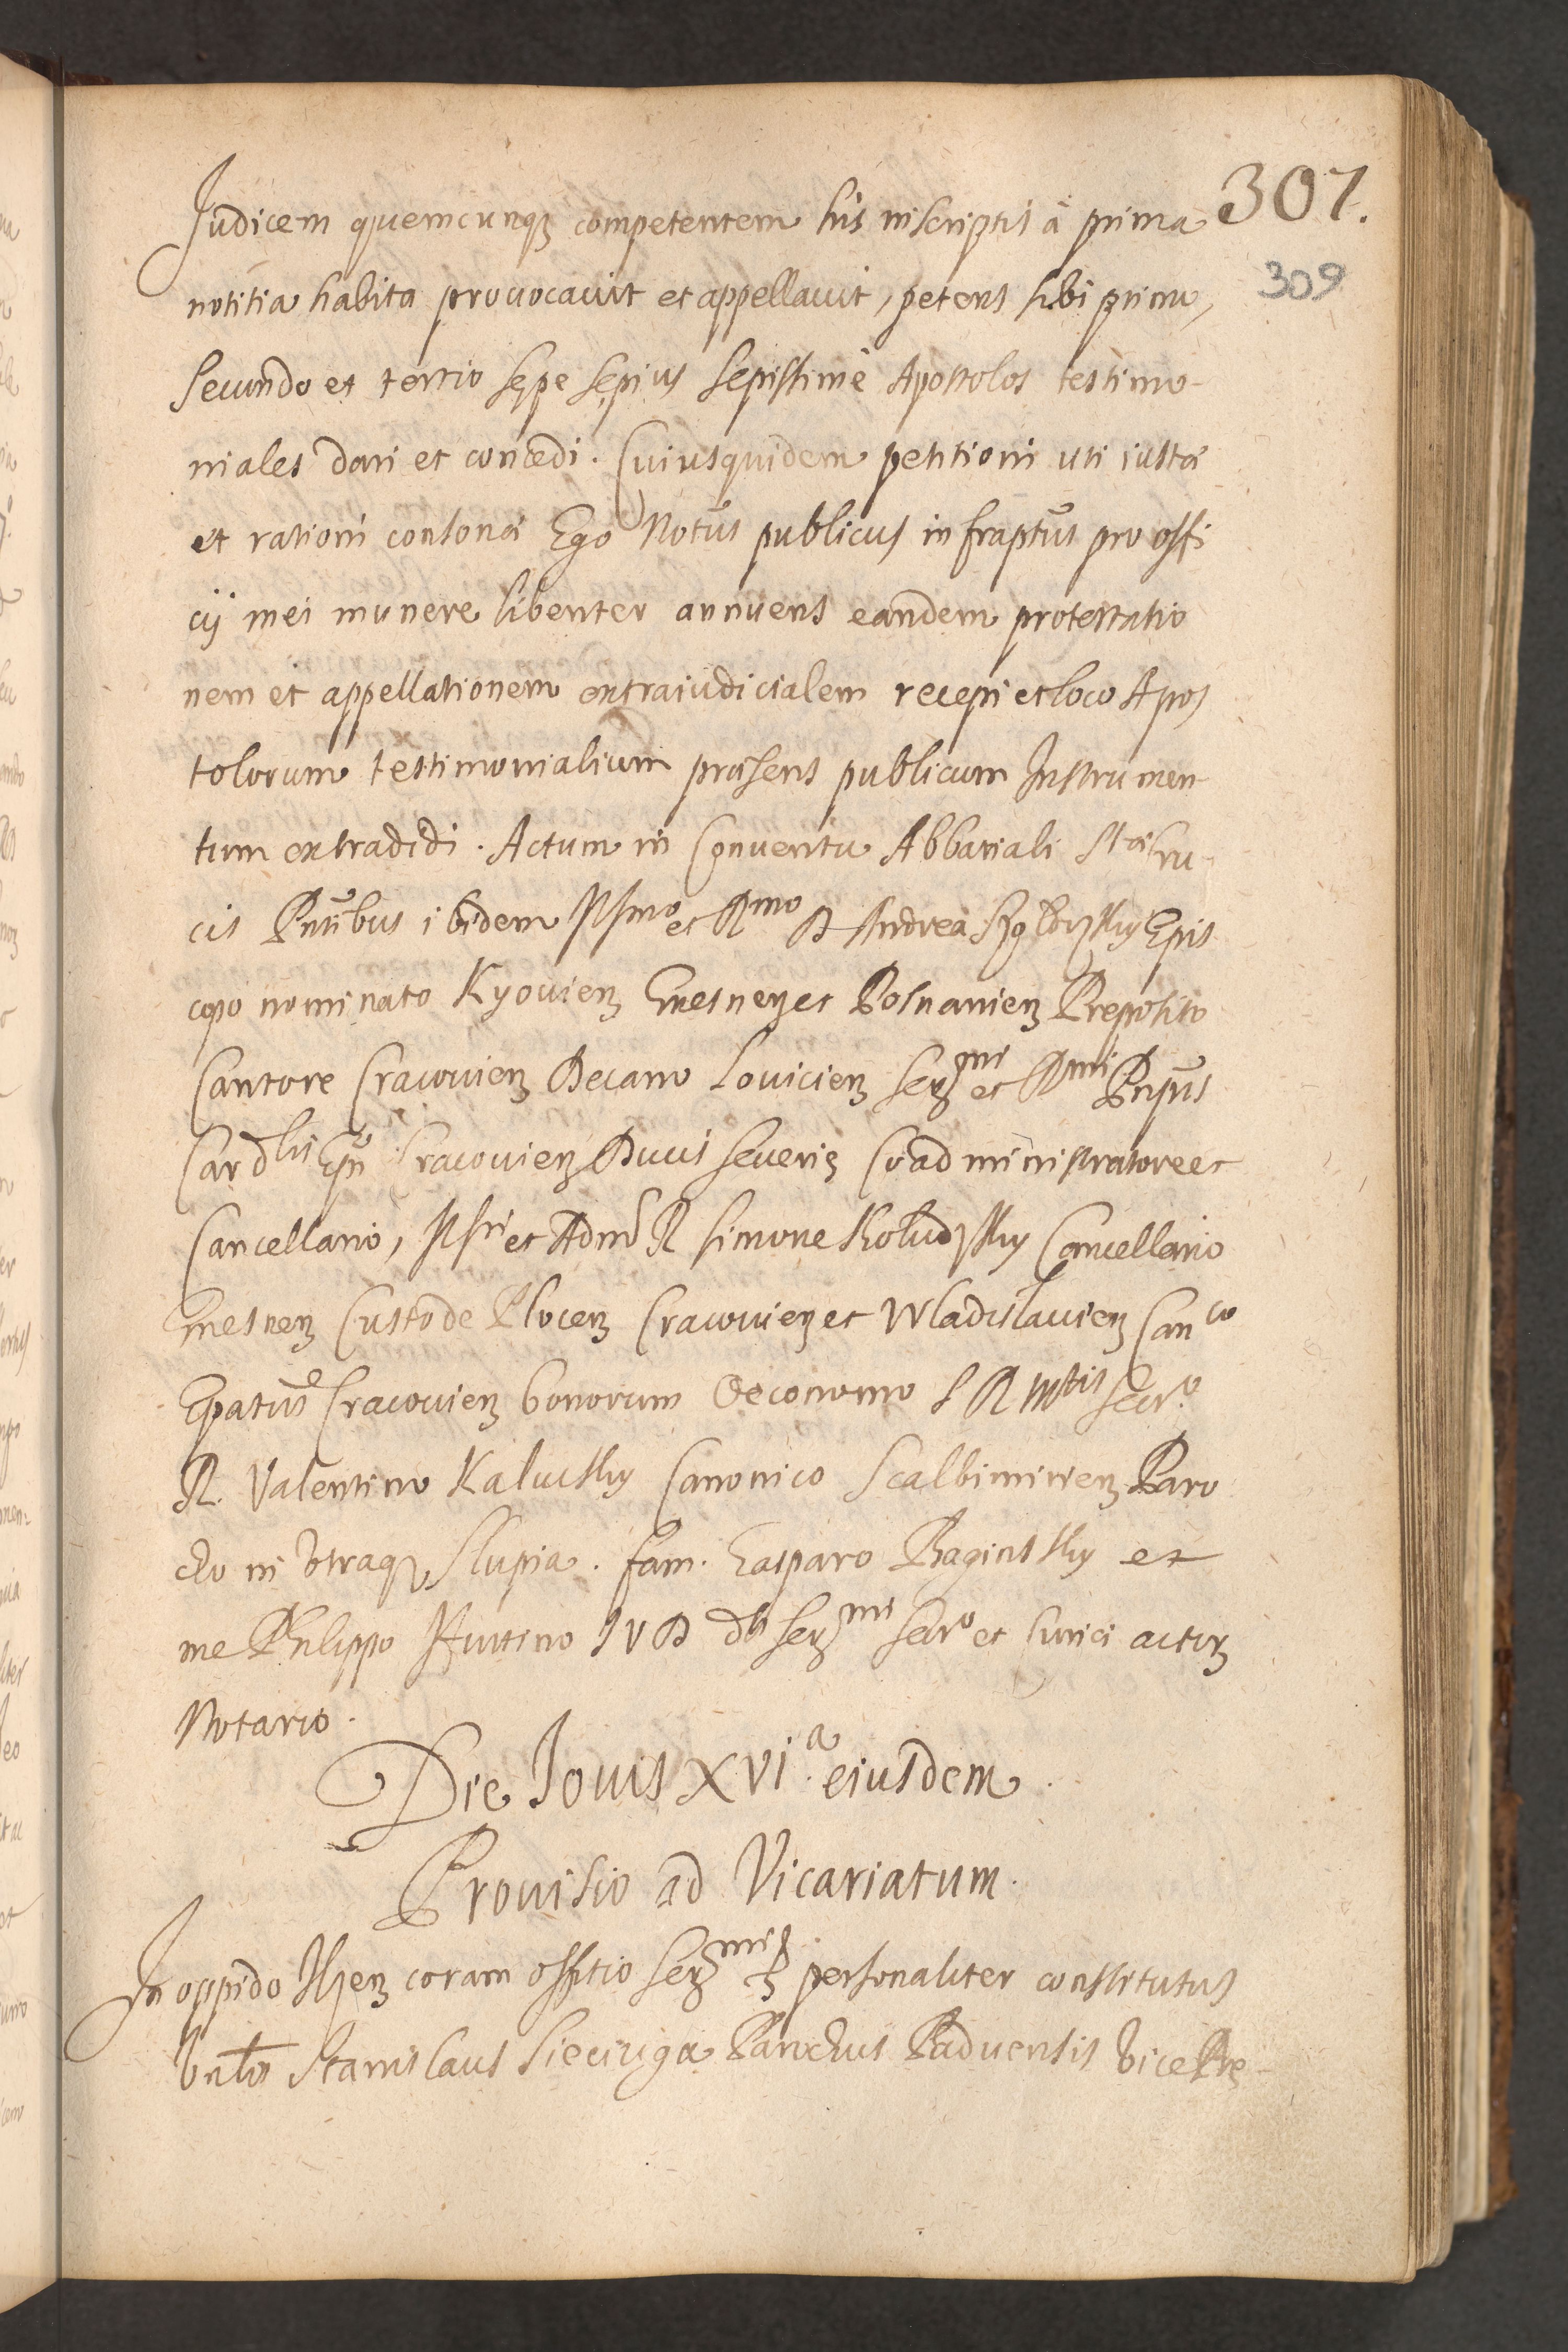 307.
309
Iudicem quemcunqз competentem his inscriptis à prima
notitia habita prouocauit et appellauit, petens sibi primo,
Secundo et tertio sepe sepius sepissimè Apostolos testimo-
niales dari et concedi. Cuiusquidem petitioni uti iustæ
et rationi consonæ Ego Notus publicus infraptus pro offi
cij mei munere libenter annuens eandem protestatio
nem et appellationem extraiudicialem recepi et loco Apos
tolorum testimonialium præsens publicum Instrumen
tum extradidi. Actum in Conuentu Abbatiali Stæ Cru-
cis Pntibus ibidem Illmo et Rmo D Andrea Szołdrsky Epis
copo nominato Kyouienz Gnesnenz et Posnanienz Preposito
Cantore Cracouienz Decano Louicienz Serzmi et Rmi Prpus
Cardlis Epi Cracouienz Ducis Seuerię Coadministratore et
Cancellario, Illri et Adm R Simone Kołudzsky Cancellario
Gnesnenz Custode Plocenz Cracouienz et Wladislauienz Canco
Epatus Cracouienz bonorum Oeconomo S R Mtis Secro
R. Valentino Kaluisky Canonico Scalbimirienz Paro
cho in vtraqз Slupia. fam. Gasparo Raginsky et
me Philippo IVD Serzmi Secro et Curiæ actorz
Notario.
Die Iouis XVIa. eiusdem.
Prouisio ad Vicariatum.
In oppido Ilzenz coram offitio Serzmi personaliter constitutus
Stanislaus Sieciuga Parochus Paduensis vice Prę-